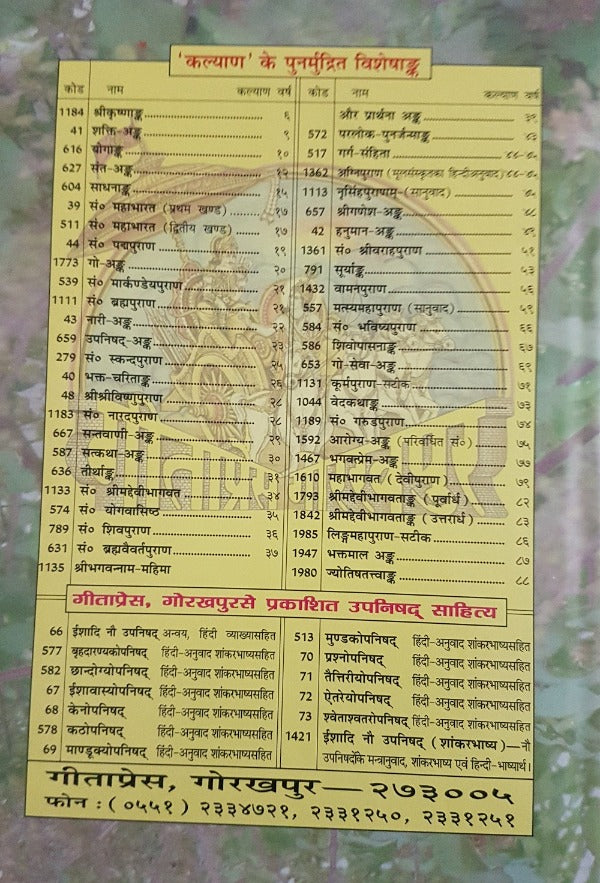 'कल्याण' के पुनर्मुद्रित विशेषाङ्क
कोड नाम कल्याण वर्ष
1184 श्रीकृष्णाङ्क ६
41 शक्ति-अङ्क ९
616 योगाङ्क १०
627 संत-अङ्क १२
604 साधनाङ्क १५
39 सं० महाभारत (प्रथम खण्ड) १७
511 सं० महाभारत (द्वितीय खण्ड) १७
44 सं० पद्मपुराण १९
1773 गो-अङ्क २०
539 सं० मार्कण्डेयपुराण २१
1111 सं० ब्रह्मपुराण २१
43 नारी-अङ्क २२
659 उपनिषद्-अङ्क २३
279 सं० स्कन्दपुराण २५
40 भक्त-चरिताङ्क २६
48 श्रीश्रीविष्णुपुराण २८
1183 सं० नारदपुराण २८
667 सन्तवाणी-अङ्क २९
587 सत्कथा-अङ्क ३०
636 तीर्थाङ्क ३१
1133 सं० श्रीमद्देवीभागवत ३४
574 सं० योगवासिष्ठ ३५
789 सं० शिवपुराण ३६
631 सं० ब्रह्मवैवर्तपुराण ३७
1135 श्रीभगवन्नाम-महिमा
कोड नाम कल्याण वर्ष
और प्रार्थना अङ्क ३९
572 परलोक-पुनर्जन्माङ्क ४३
517 गर्ग-संहिता ४४-४५
1362 अग्निपुराण (मूलसंस्कृतका हिन्दीअनुवाद) ४४-४५
1113 नृसिंहपुराणम्-(सानुवाद) ४५
657 श्रीगणेश-अङ्क ४८
42 हनुमान-अङ्क ४९
1361 सं० श्रीवराहपुराण ५१
791 सूर्याङ्क ५३
1432 वामनपुराण ५६
557 मत्स्यमहापुराण (सानुवाद) ५९
584 सं० भविष्यपुराण ६६
586 शिवोपासनाङ्क ६७
653 गो-सेवा-अङ्क ६९
1131 कूर्मपुराण-सटीक ७१
1044 वेदकथाङ्क ७३
1189 सं० गरुडपुराण ७४
1592 आरोग्य-अङ्क (परिवर्धित सं०) ७५
1467 भगवत्प्रेम-अङ्क ७७
1610 महाभागवत (देवीपुराण) ७९
1793 श्रीमद्देवीभागवताङ्क (पूर्वार्ध) ८२
1842 श्रीमद्देवीभागवताङ्क (उत्तरार्ध) ८३
1985 लिङ्गमहापुराण-सटीक ८६
1947 भक्तमाल अङ्क ८७
1980 ज्योतिषतत्त्वाङ्क ८८
गीताप्रेस, गोरखपुरसे प्रकाशित उपनिषद् साहित्य
66 ईशादि नौ उपनिषद् अन्वय, हिंदी व्याख्यासहित
577 बृहदारण्यकोपनिषद् हिंदी-अनुवाद शांकरभाष्यसहित
582 छान्दोग्योपनिषद् हिंदी-अनुवाद शांकरभाष्यसहित
67 ईशावास्योपनिषद् हिंदी-अनुवाद शांकरभाष्यसहित
68 केनोपनिषद् हिंदी-अनुवाद शांकरभाष्यसहित
578 कठोपनिषद् हिंदी-अनुवाद शांकरभाष्यसहित
69 माण्डूक्योपनिषद् हिंदी-अनुवाद शांकरभाष्यसहित
513 मुण्डकोपनिषद् हिंदी-अनुवाद शांकरभाष्यसहित
70 प्रश्नोपनिषद् हिंदी-अनुवाद शांकरभाष्यसहित
71 तैत्तिरीयोपनिषद् हिंदी-अनुवाद शांकरभाष्यसहित
72 ऐतरेयोपनिषद् हिंदी-अनुवाद शांकरभाष्यसहित
73 श्वेताश्वतरोपनिषद् हिंदी-अनुवाद शांकरभाष्यसहित
1421 ईशादि नौ उपनिषद् (शांकरभाष्य)—नौ
उपनिषदोंके मन्त्रानुवाद, शांकरभाष्य एवं हिन्दी-भाष्यार्थ।
गीताप्रेस, गोरखपुर—२७३००५
फोन : (०५५१) २३३४७२१, २३३१२५०, २३३१२५१